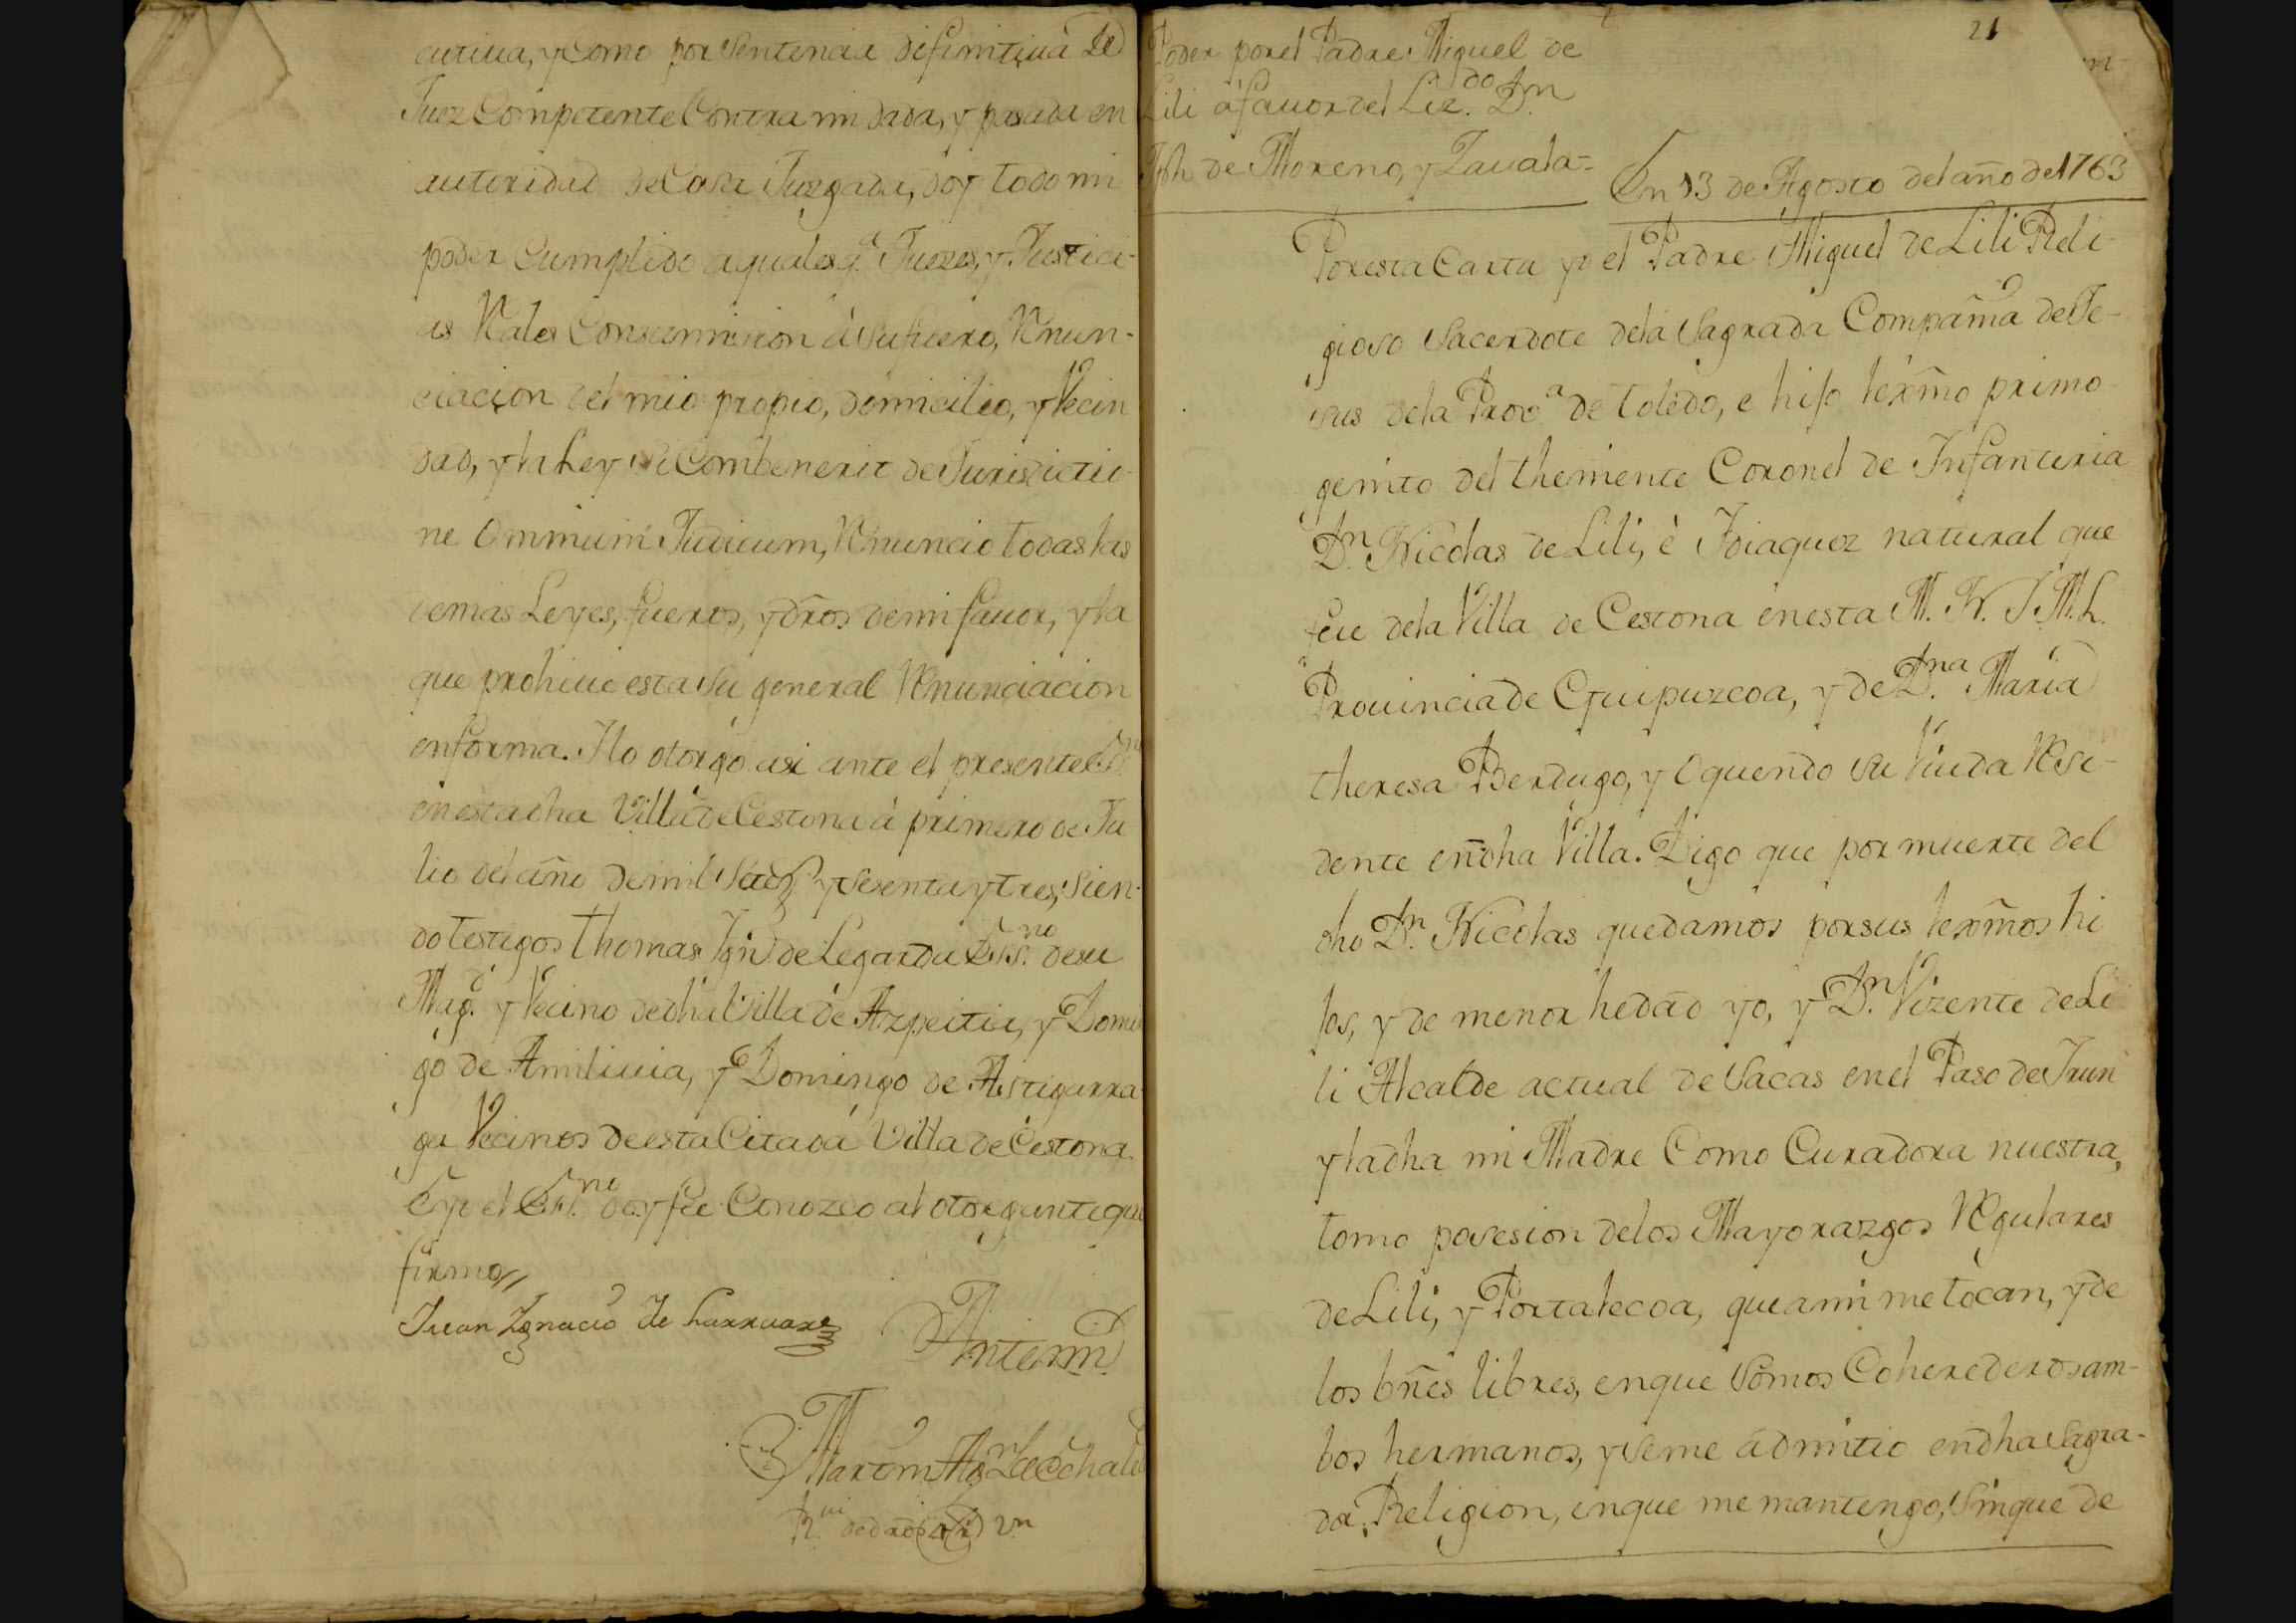 cutiua, y Como por Sentencia difinitiua de
Juez Competente Contra mi dada, y pasada en
autoridad de Cosa Juzgada, doy todo mi
poder Cumplido a quales q.ª Juezes, y Justici-
as Rales Con sumision â su fuero, Renun-
ciacion del mio propio, domicilio, y Vecin
dad, y la Ley si Combenerit de Jurisdictio-
ne Omnium Judicum, Renuncio todas las
demas Leyes, fueros, y dr̃os de mi fauor, y la
que prohiue esta Su general Renunciacion
en forma. I lo otorgo asi ante el presente Ess.no
en esta dha Villa de Cestona â primero de Ju
lio del año de mil Setez.s y Sesenta y tres; Sien-
do testigos thomas Ign.º de Legarda Ess.no de su
Mag.d y Vecino de dha Villa de Azpeitia, y Domin
go de Amiliuia, y Domingo de Astigarra
ga Vecinos de esta Citada Villa de Cestona.
E yo el Ess.no doy fee Conozco al otorgante que
firmo//
Juan Ignacio de Larruare
Ante mi
Martin Ag.n de
R.ui de dr̃os 2 r.s v.n
21
Poder por el Padre Miguel de
Lili â fauor del Liz.do D.n
Jph de Moreno, y Zauala=
En 13 de Agosto del año de 1763
Por esta Carta yo el Padre Miguel de Lili Reli-
gioso Sacerdote de la Sagrada Compañia de Je-
sus de la Prov.a de toledo, e hijo lexm̃o primo-
genito del theniente Coronel de Infanteria
D.n Nicolas de Lili, è Idiaquez natural que
fue de la Villa de Cestona en esta M. N. I M. L.
Prouincia de Guipuzcoa, y de D.na Maria
theresa Berdugo, y Oquendo su Viuda Resi-
dente en dha Villa. Digo que por muerte del
dho D.n Nicolas quedamos por sus lexm̃os hi
jos, y de menor hedad yo, y D.n Vizente de Li
li Alcalde actual de Sacas en el Paso de Irun
y la dha mi Madre Como Curadora nuestra,
tomo posesion de los Mayorazgos Regulares
de Lili, y Portalecoa, que a mi me tocan, y de
los bñes libres, en que Somos Coherederos am-
bos hermanos, y Se me admitio en dha Sagra-
da Religion, en que me mantengo, Sin que de